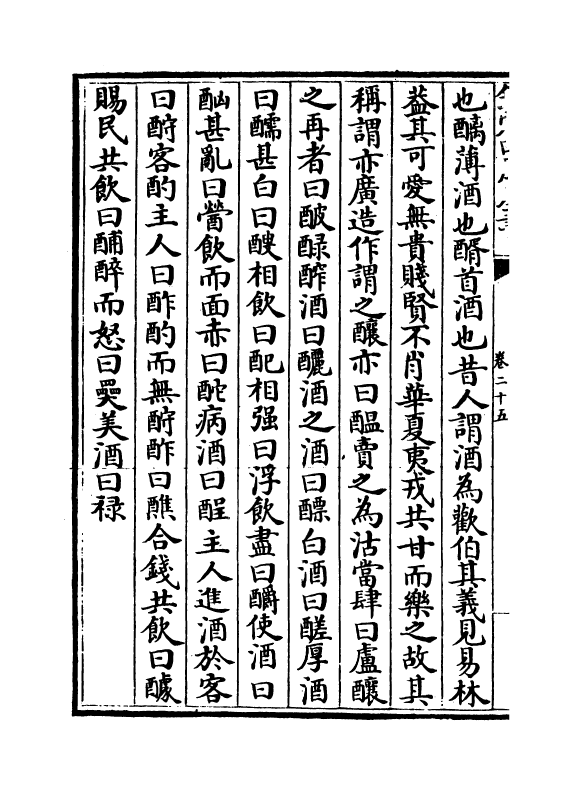 卷二十五
也醨薄酒也醑首酒也昔人謂酒為歡伯其義見易林
葢其可愛無貴賤賢不肖華夏夷戎共甘而樂之故其
稱謂亦廣造作謂之釀亦曰醖賣之為沽當肆曰盧釀
之再者曰酦醁酹酒曰釃酒之酒曰醥白酒曰醝厚酒
曰醹甚白曰醙相飲曰配相强曰浮飲盡曰釂使酒曰
酗甚亂曰醟飲而面赤曰酡病酒曰酲主人進酒於客
曰酧客酌主人曰酢酌而無酧酢曰醮合錢共飲曰醵
賜民共飲曰酺醉而怒曰奰美酒曰禄